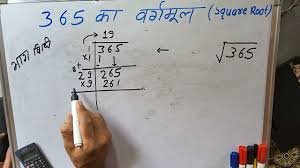 365 का वर्गमूल (Square Root)
भाग विधि
19
×1 365 ← √365
+ 1 ↓
29 265
×9 261